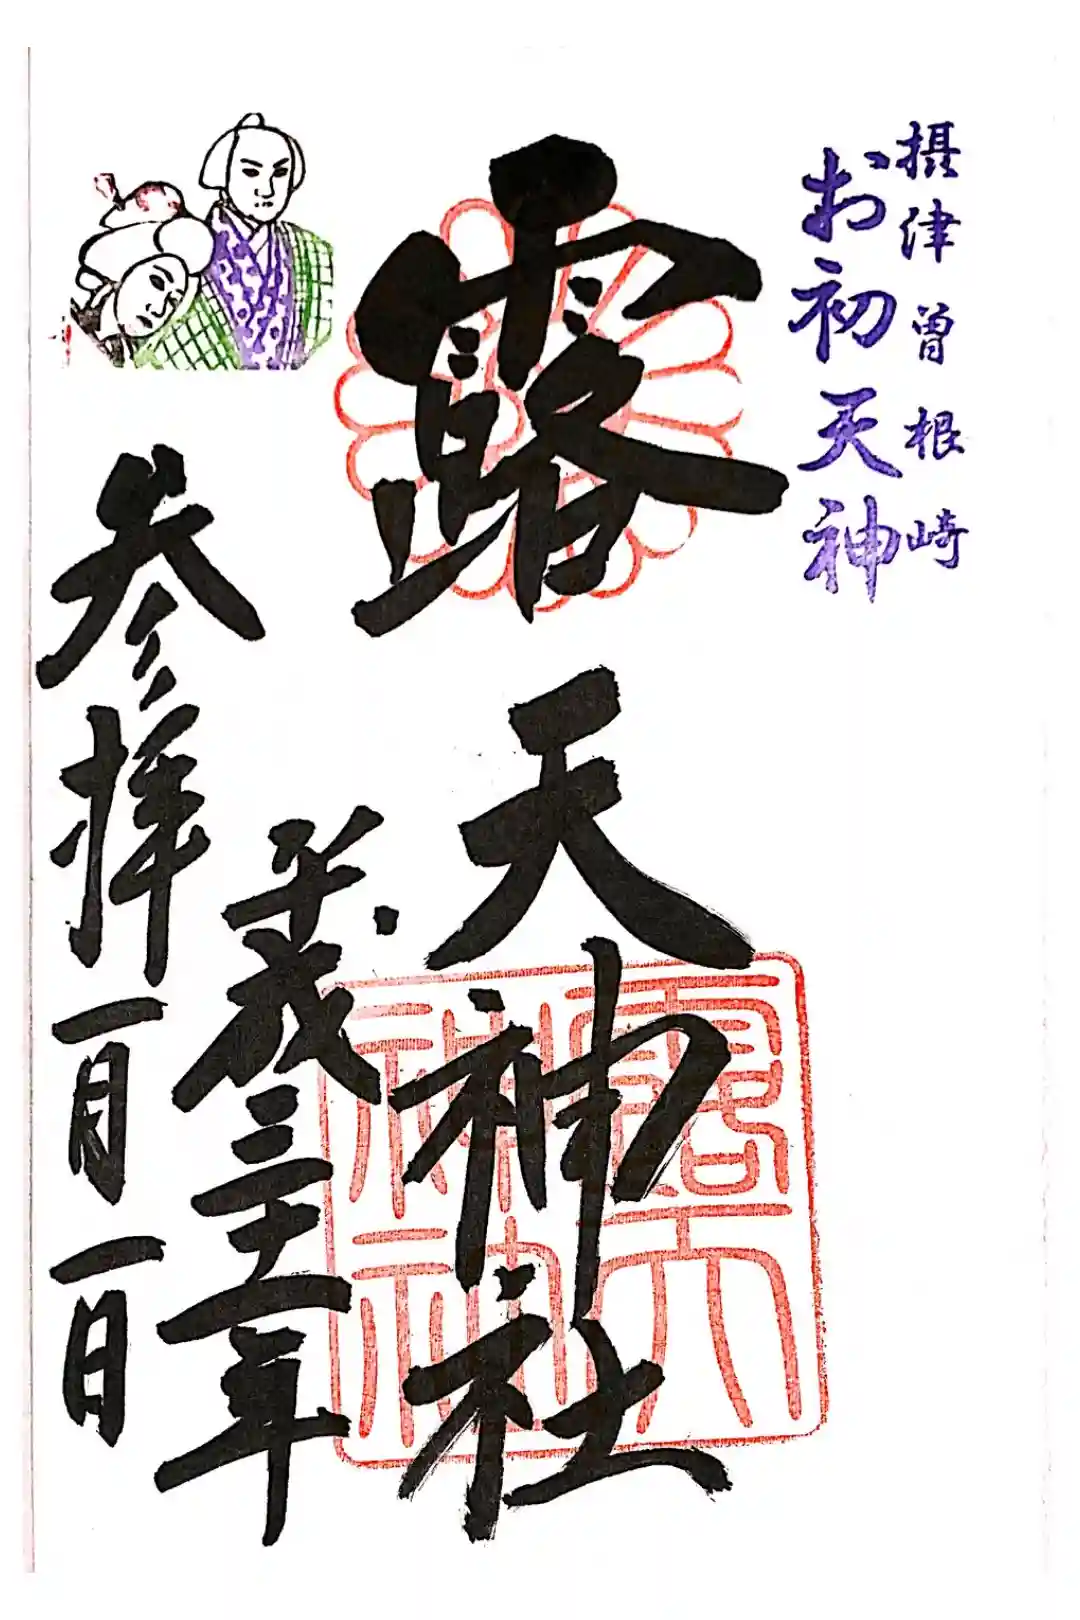 摂津曽根崎
お初天神
露天神社
露天
神社
平成三十一年
参拝一月一日